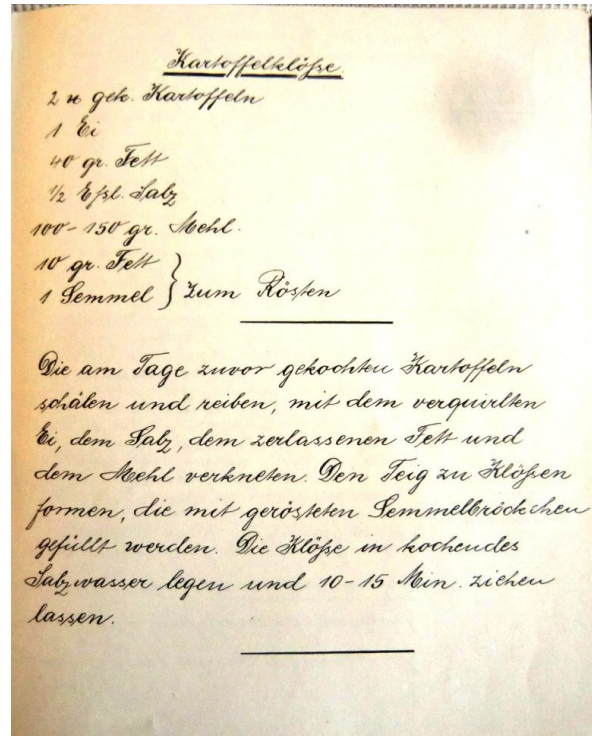 Kartoffelklöße.
2 ℔ gek. Kartoffeln
1 Ei
40 gr. Fett
½ Eßl. Salz
100-150 gr. Mehl.
10 gr. Fett
1 Semmel } zum Rösten
Die am Tage zuvor gekochten Kartoffeln
schälen und reiben, mit dem verquirlten
Ei, dem Salz, dem zerlassenen Fett und
dem Mehl verkneten. Den Teig zu Klößen
formen, die mit gerösteten Semmelbröckchen
gefüllt werden. Die Klöße in kochendes
Salzwasser legen und 10-15 Min. ziehen
lassen.